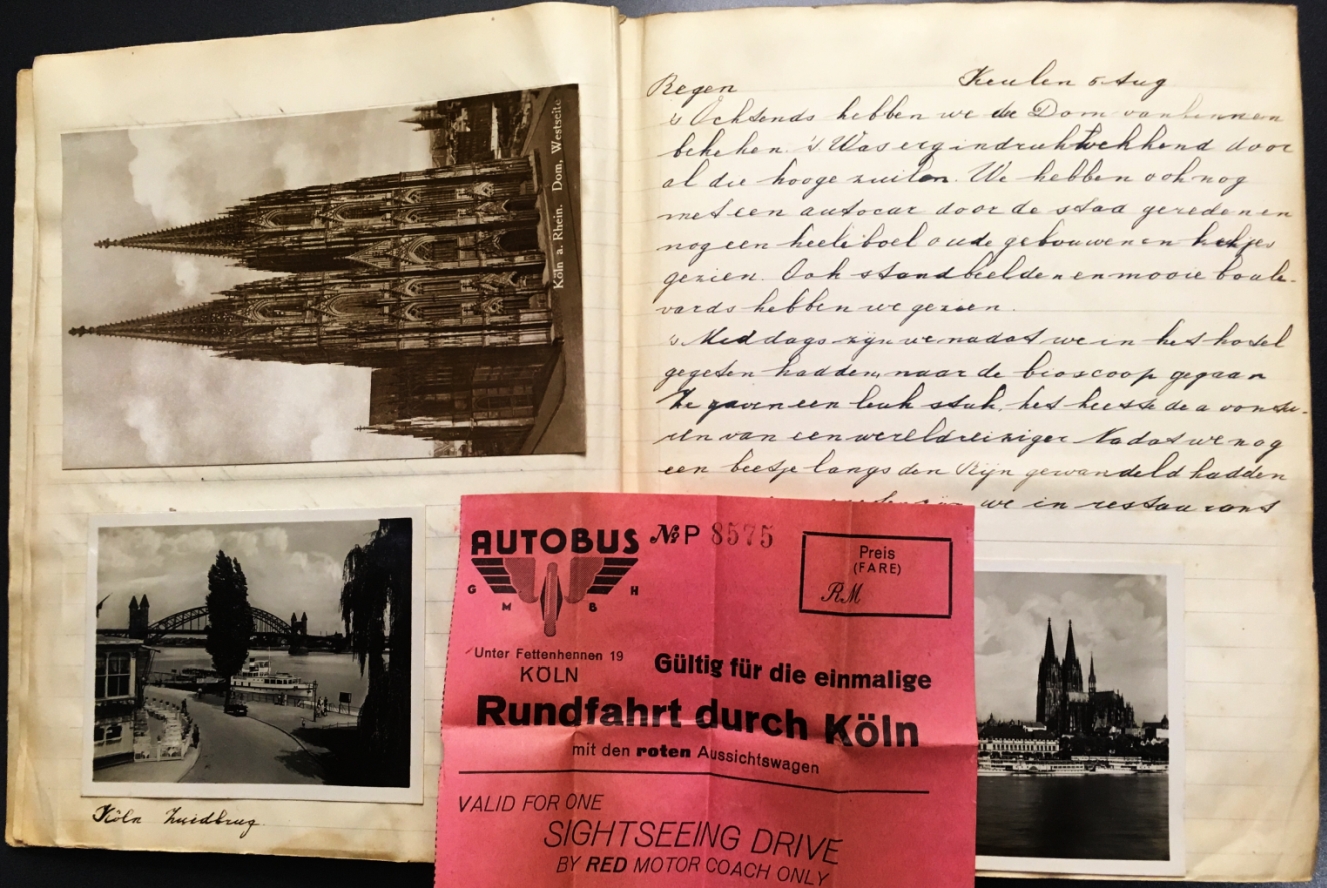 Köln a. Rhein. Dom, Westseite
Köln Zuidbrug
Regen Keulen 5 Aug
's Ochtends hebben we de Dom van binnen
bekeken. 't Was erg indrukwekkend door
al die hooge zuilen. We hebben ook nog
met een autocar door de stad gereden en
nog een heeleboel oude gebouwen en
gezien. Ook standbeelden en mooie boule-
vards hebben we gezien.
's Middags zijn we nadat we in het hotel
gegeten hadden, naar de bioscoop gegaan
Ze gaven een leuk stuk, het heette de avontu-
ren van een wereldreiziger Nadat we nog
een beetje langs den Rijn gewandeld hadden
we in restaurant
AUTOBUS
G M B H
№ P 8575
Preis
(FARE)
RM
Unter Fettenhennen 19
KÖLN
Gültig für die einmalige
Rundfahrt durch Köln
mit den roten Aussichtswagen
VALID FOR ONE
SIGHTSEEING DRIVE
BY RED MOTOR COACH ONLY